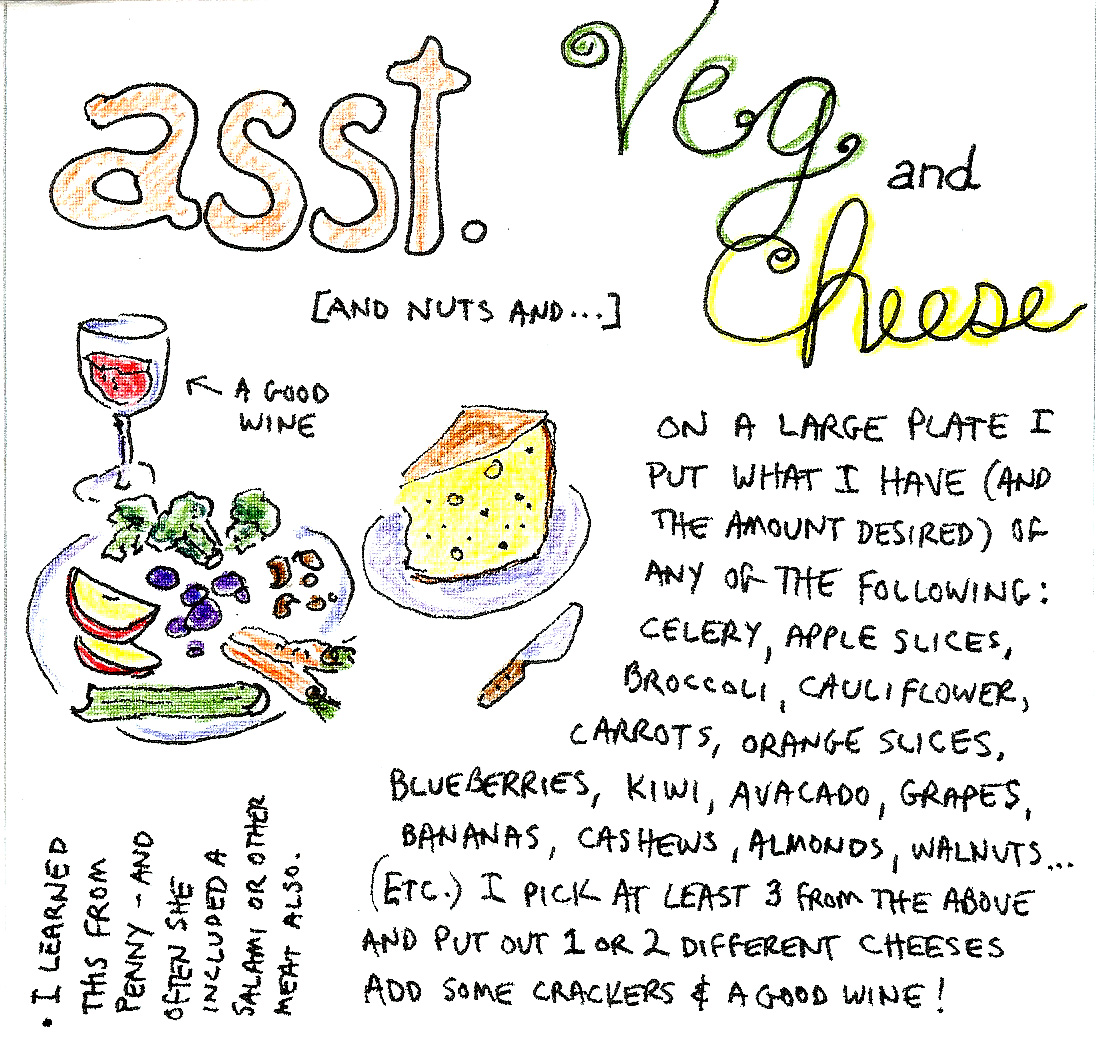 asst.
Veg and
Cheese
[AND NUTS AND...]
← A GOOD
WINE
ON A LARGE PLATE I
PUT WHAT I HAVE (AND
THE AMOUNT DESIRED) OF
ANY OF THE FOLLOWING:
CELERY, APPLE SLICES,
BROCCOLI, CAULIFLOWER,
CARROTS, ORANGE SLICES,
BLUEBERRIES, KIWI, AVACADO, GRAPES,
BANANAS, CASHEWS, ALMONDS, WALNUTS...
(ETC.) I PICK AT LEAST 3 FROM THE ABOVE
AND PUT OUT 1 OR 2 DIFFERENT CHEESES
ADD SOME CRACKERS & A GOOD WINE!
• I LEARNED
THIS FROM
PENNY - AND
OFTEN SHE
INCLUDED A
SALAMI OR OTHER
MEAT ALSO.